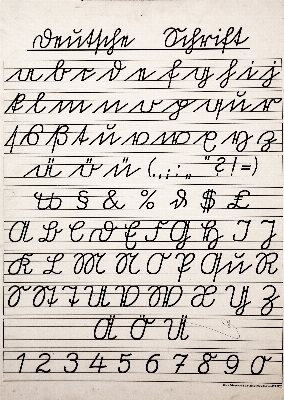 Deutsche Schrift
a b c d e f g h i j
k l m n o p qu r
ſ s ß t u v w x y z
ä ö ü ( , . ; : „ " ? ! = )
tz § & % ₰ $ £
A B C D E F G H I J
K L M N O P Qu R
S St T U V W X Y Z
Ä Ö Ü
1 2 3 4 5 6 7 8 9 0